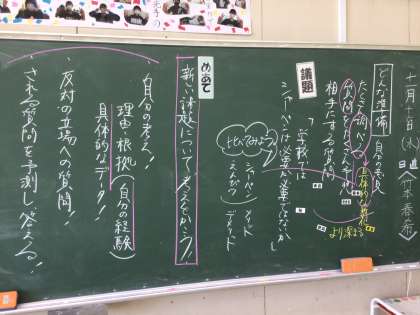 十一月十日(火)
日直
どんな準備
自分の考え
たくさん調べる
質問をたくさん考え
相手にする質問
具体的な
より深まる
議題
「学校では
シャーペンは必要か必要ではないか」
比べてみよう
シャーペン
えんぴつ
メリット
デメリット
めあて
新しい議題について考えをもとう!!
自分の考え!
理由・根拠(自分の経験)
具体的なデータ!
反対の立場への質問!
される質問を予測し答える!